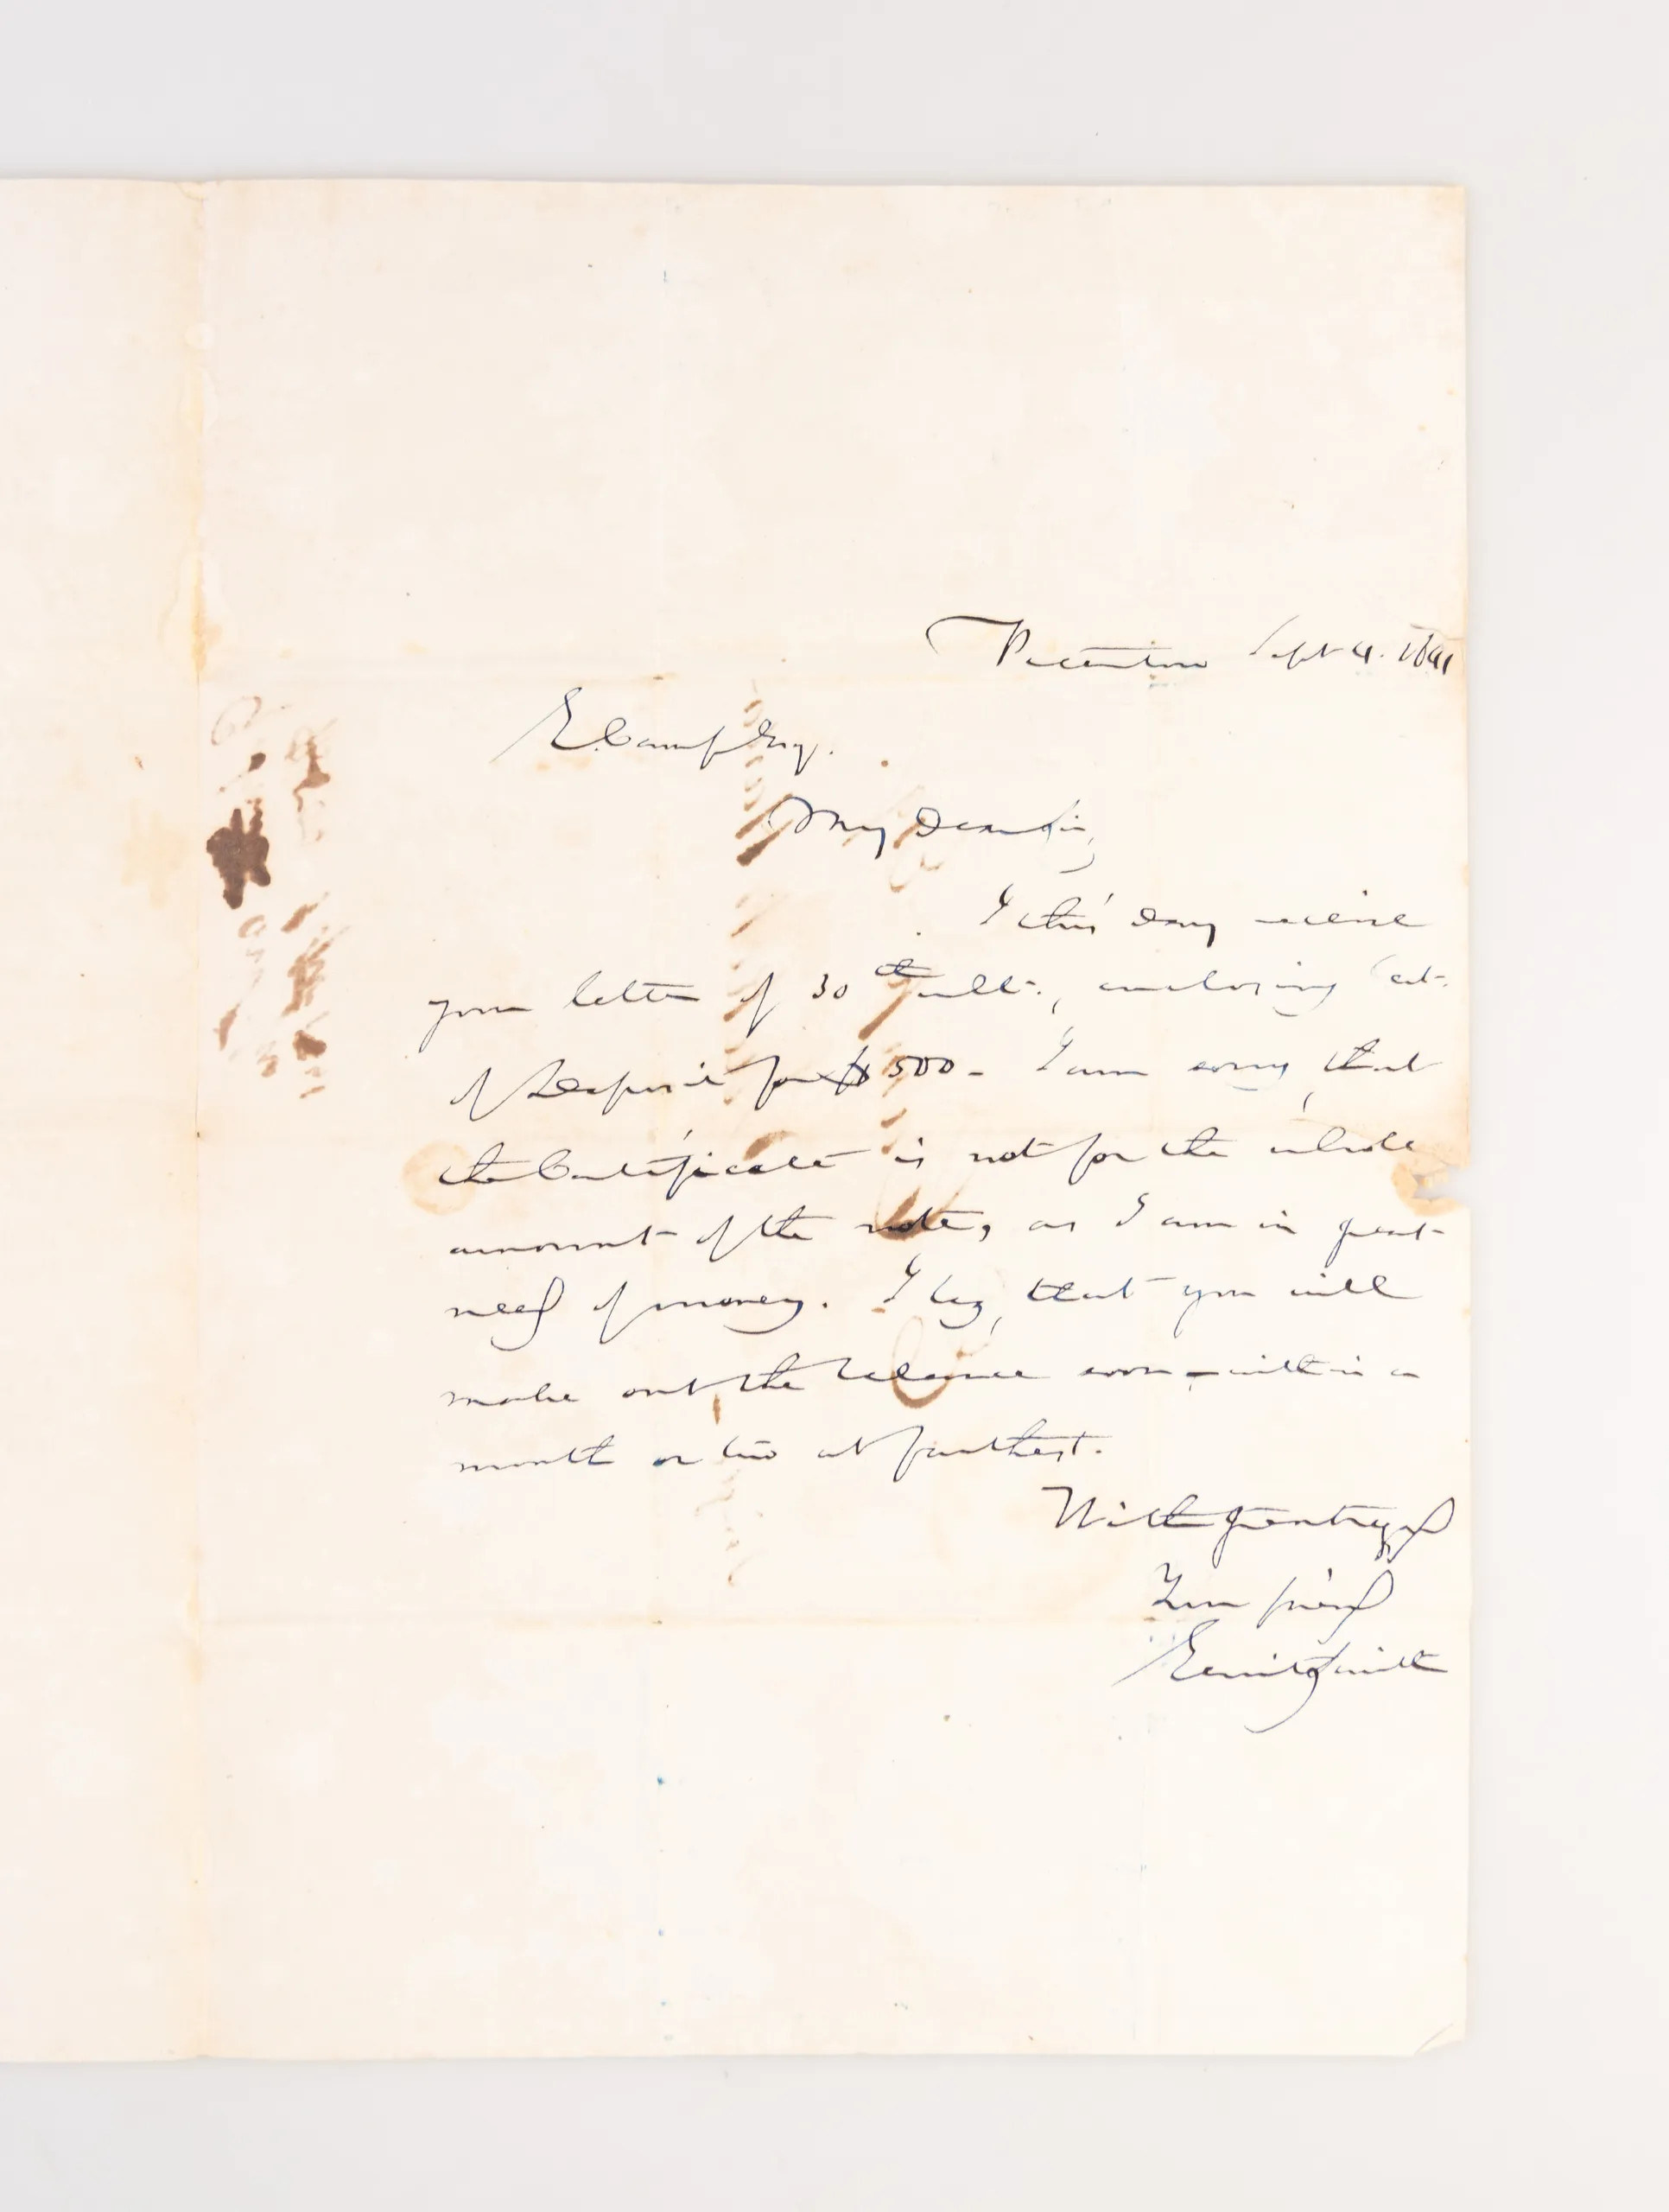 Peterboro Sept 4. 1841
E. Camp Esq.
My Dear Sir,
I this day receive
your letter of 30th ult., enclosing Cert.
of Deposit for $500 - I am sorry, that
the Certificate is not for the whole
amount of the note, as I am in great
need of money. I beg, that you will
make out the balance soon - within a
month or two at farthest.
With great regard
Your friend
Gerrit Smith